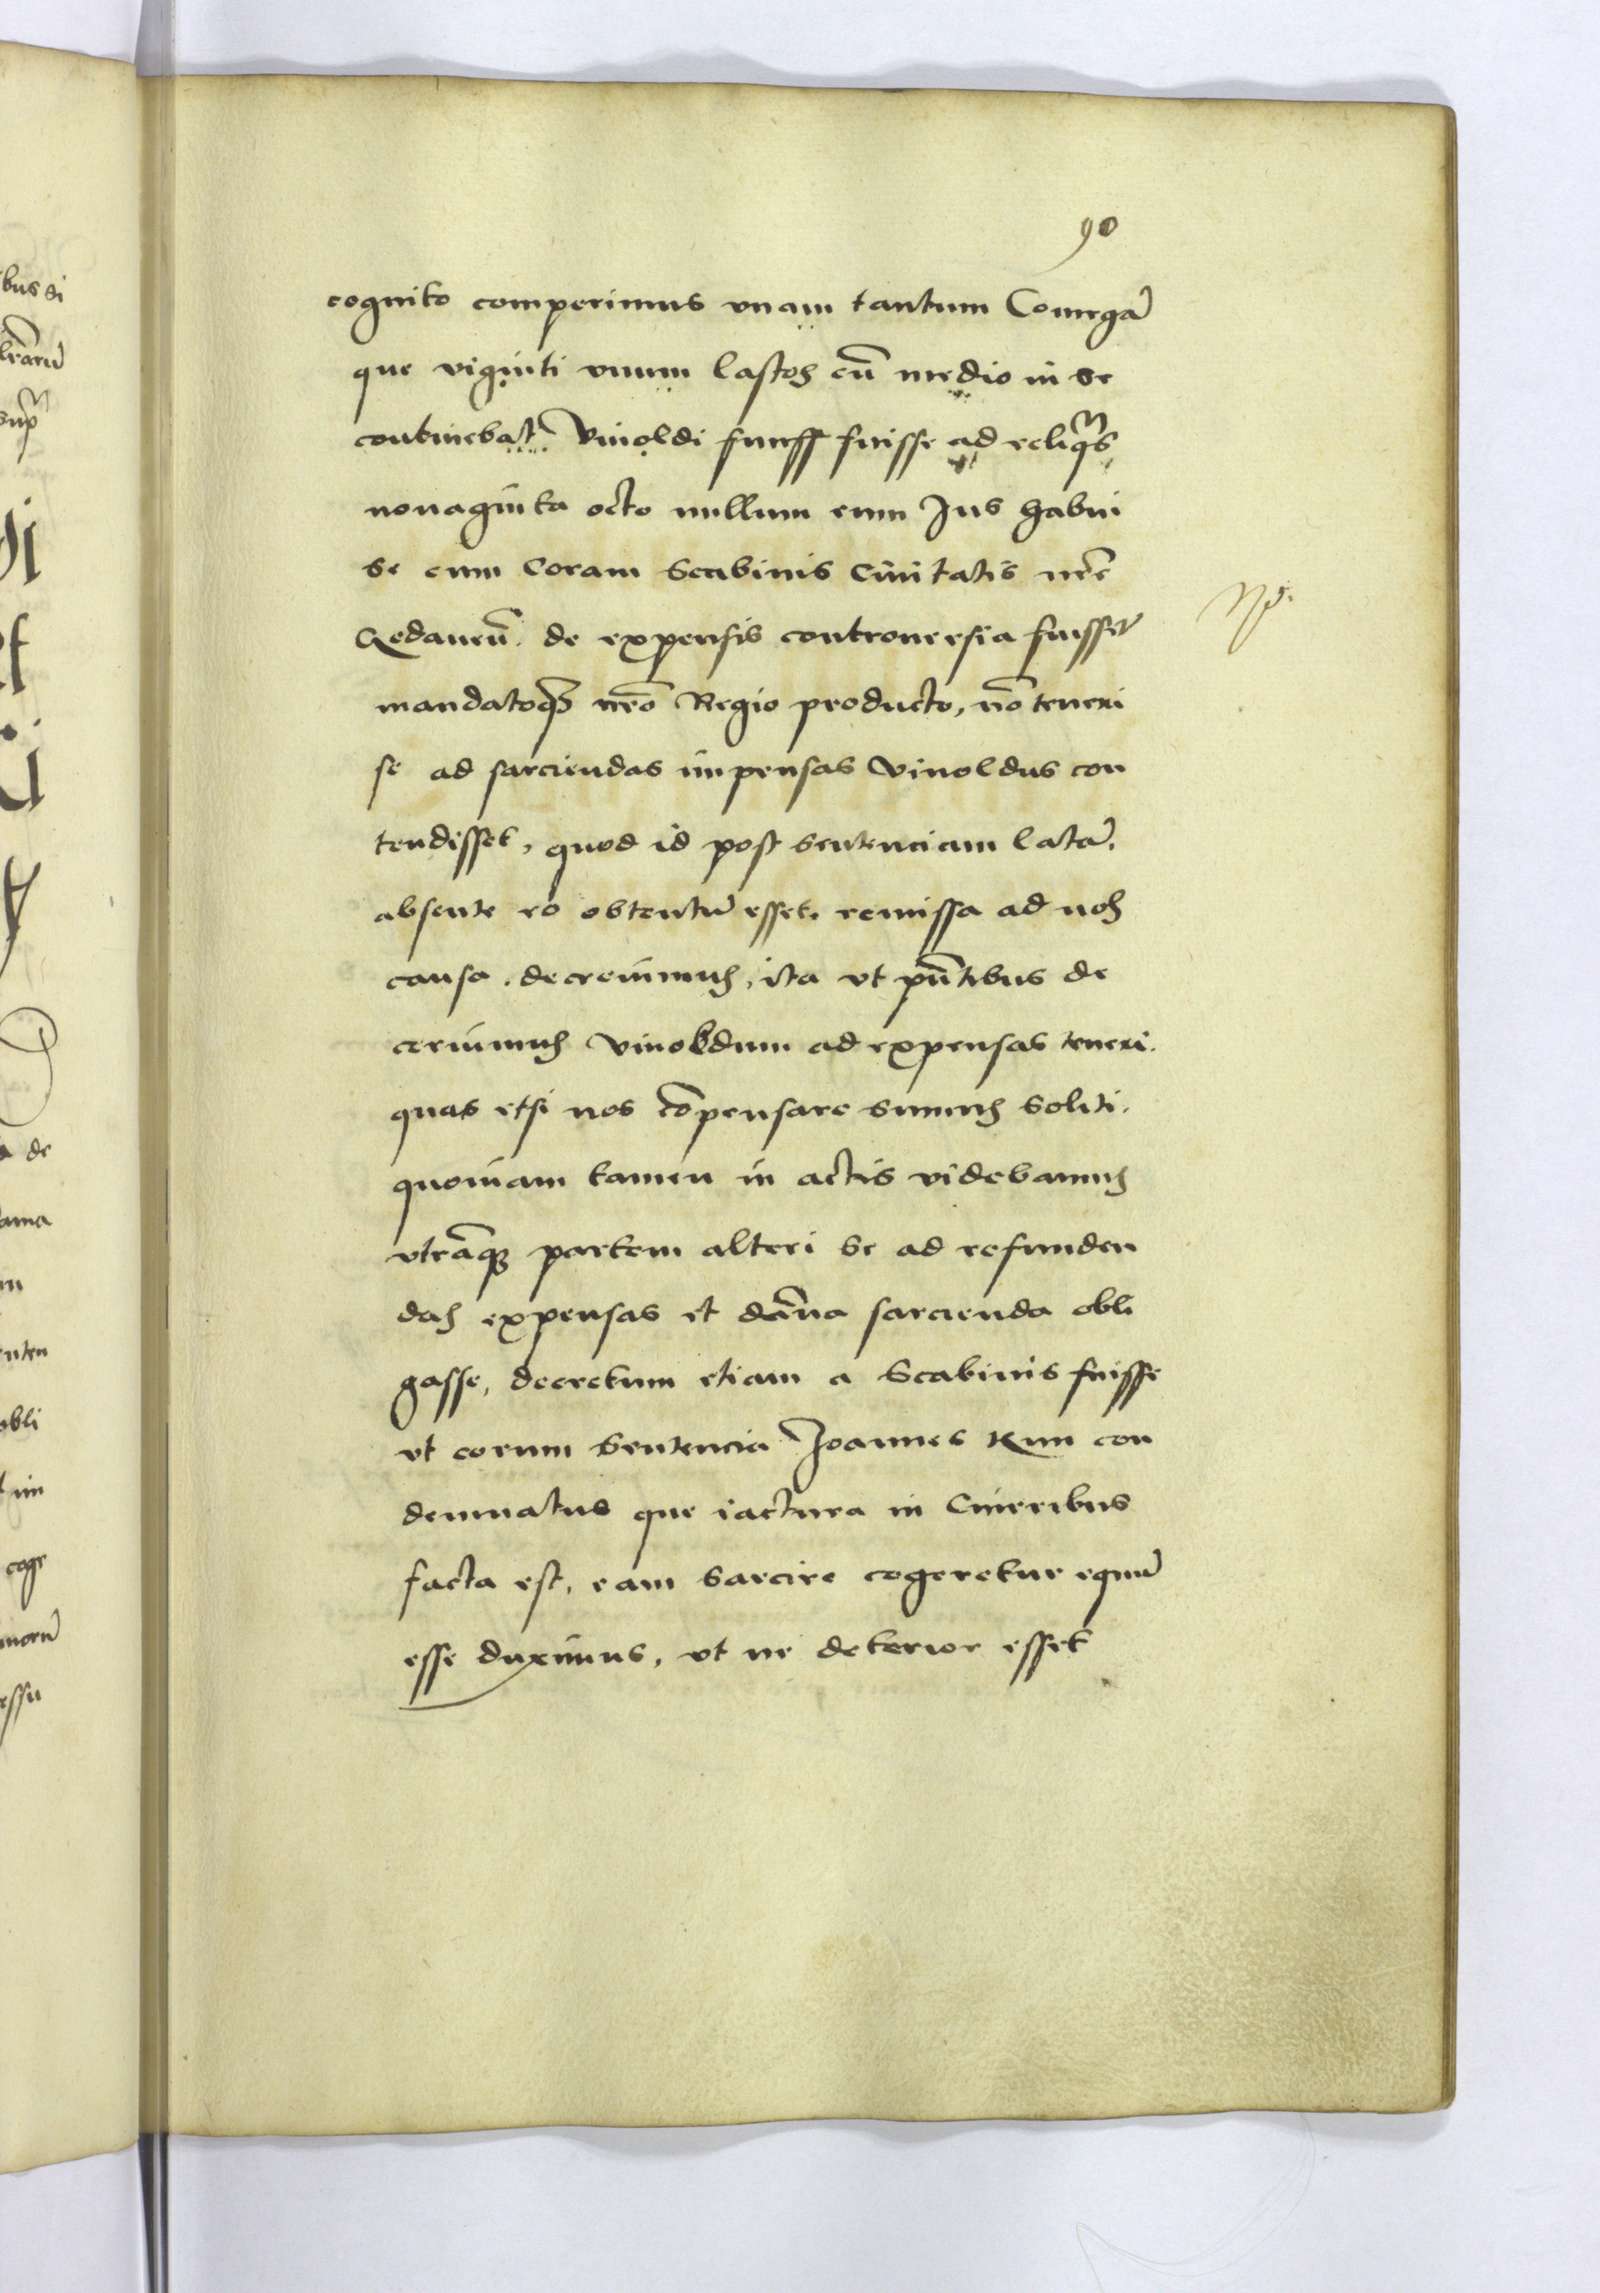 90
cognito comperimus vnam tantum Comegā
que viginti vnum lastos cū medio in se
continebat Vinoldi funff fuisse ad reliqs
nonaginta octo nullum eum Jus habui
se cum coram Scabinis Ciuitatis nrē
Gedaneñ. de expensis controuersia fuisset
mandatoq3 nrō Regio producto, nō teneri
se ad sarciendas impensas Vinoldus con
tendisset, quod id post sentenciam latā,
absente eo obtentū esset. remissa ad nos
causa. decreuimus, ita vt pñtibus de
cernimus Vinoldum ad expensas teneri.
quas etsi nos cōpensare sumus soliti.
quoniam tamen in actis videbamus
vtrāq3 partem alteri se ad refunden
das expensas et dāna sarcienda obli
gasse, decretum etiam a Scabinis fuisse
vt eorum sentencia Joannes Kun con
demnatus que iactura in Cineribus
facta est, eam sarcire cogeretur equū
esse duximus, vt ne deterior esset
bus si
a de
enten
obli
coge